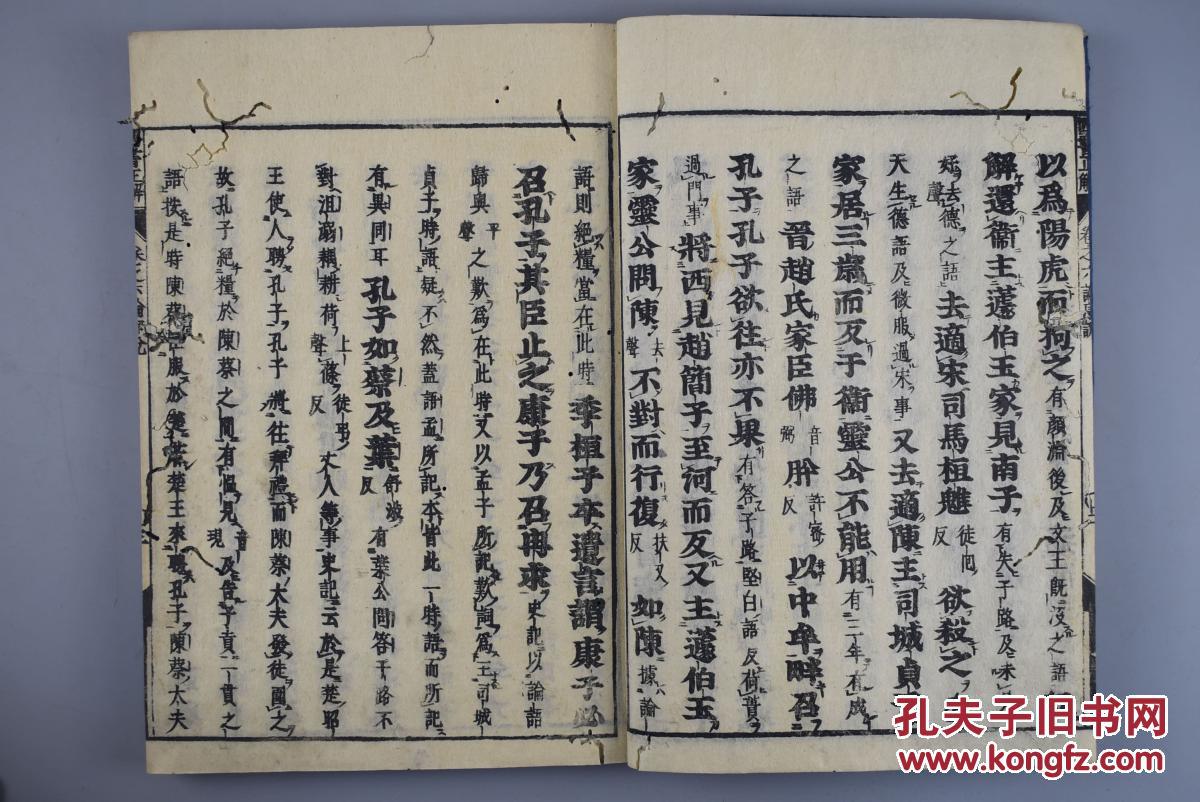 以爲陽虎而拘之有顏淵後及文王既沒之語
解還衞主蘧伯玉家見南子有矢子路及未
好去聲德之語去適宋司馬桓魋徒回反欲殺之有
天生德語及微服過宋事又去適陳主司城貞
家居三歲而反于衞靈公不能用有三年有成
之語晉趙氏家臣佛音弼肸許密反以中牟畔召
孔子孔子欲往亦不果有答子路堅白語及荷蕢
過門事將西見趙簡子至河而反又主蘧伯玉
家靈公問陳去聲不對而行復扶又反如陳據論
語則絕糧當在此時季桓子卒遺言謂康子必
召孔子其臣止之康子乃召冉求史記以論語
歸與平聲之歎爲在此時又以孟子所記歎詞爲主司城
貞子時語疑不然蓋語孟所記本皆此一時語而所記
有異同耳孔子如蔡及葉舒涉反有葉公問答子路不
對沮溺耦耕荷上聲蓧徒弔反丈人等事史記云於是楚昭
王使人聘孔子孔子將往拜禮而陳蔡大夫發徒圍之
故孔子絕糧於陳蔡之間有慍見音現及告子貢一貫之
語按是時陳蔡臣服於楚若楚王來聘孔子陳蔡大夫
孔夫子旧书网
www.kongfz.com